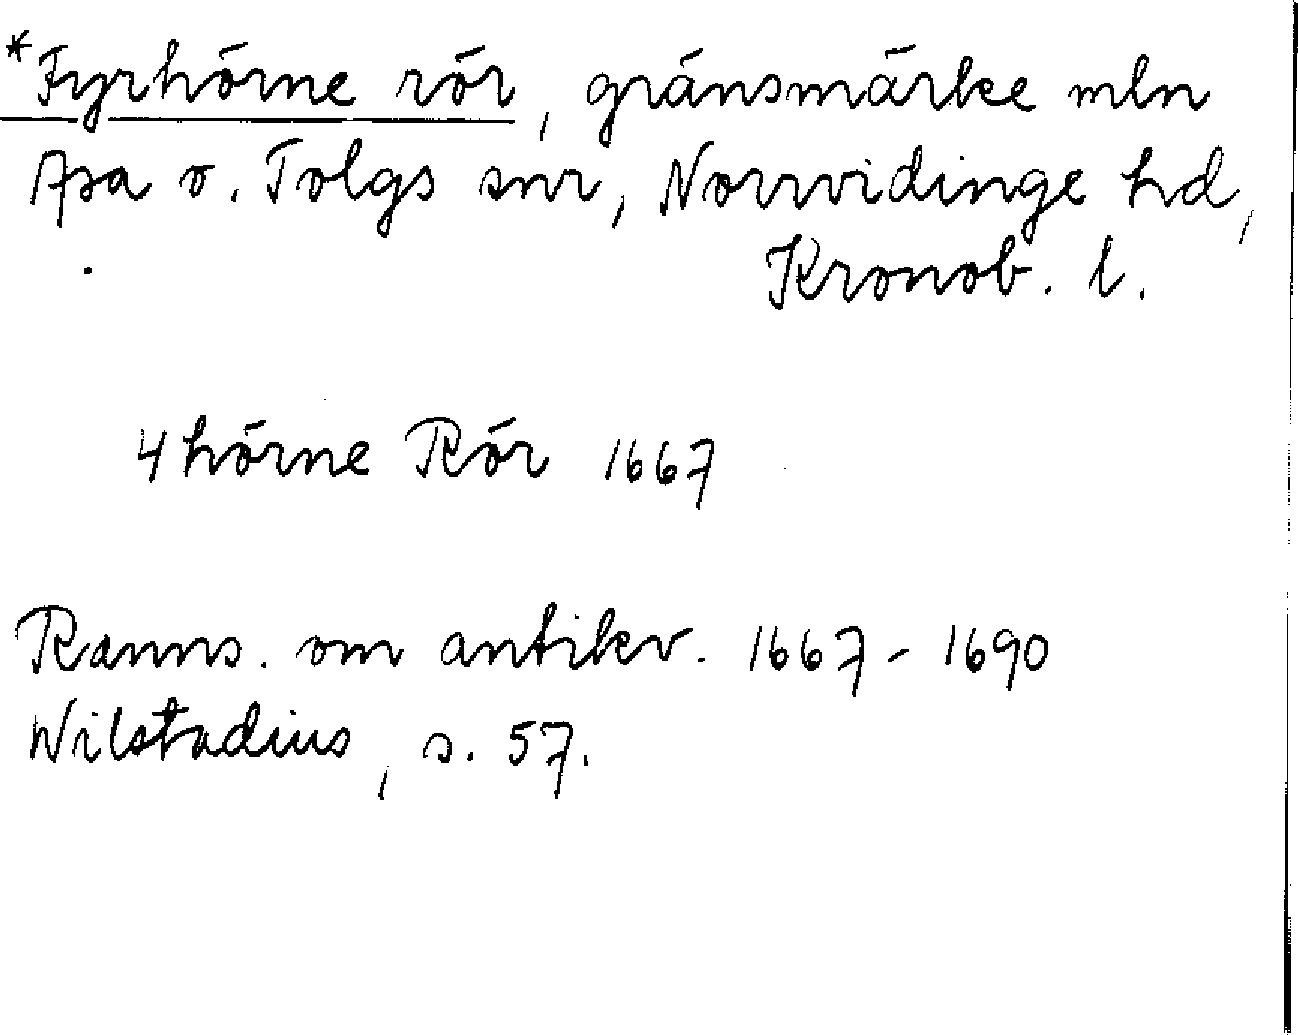 *Fyrhörne rör, gränsmärke mln
Asa o. Tolgs snr, Norrvidinge hd,
Kronob. l.
4 hörne Rör 1667
Ranns. om antikv. 1667 - 1690
Wilstadius, s. 57.